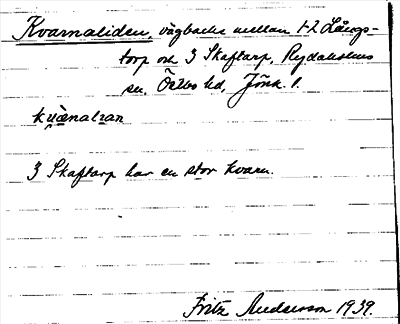 Kvarnaliden, vägbacke mellan 1-2 Långs-
torp och 3 Skaftarp, Rydaholms
sn. Östbo hd, Jönk. l.
3 Skaftarp har en stor kvarn.
Fritz Andersson 1939.